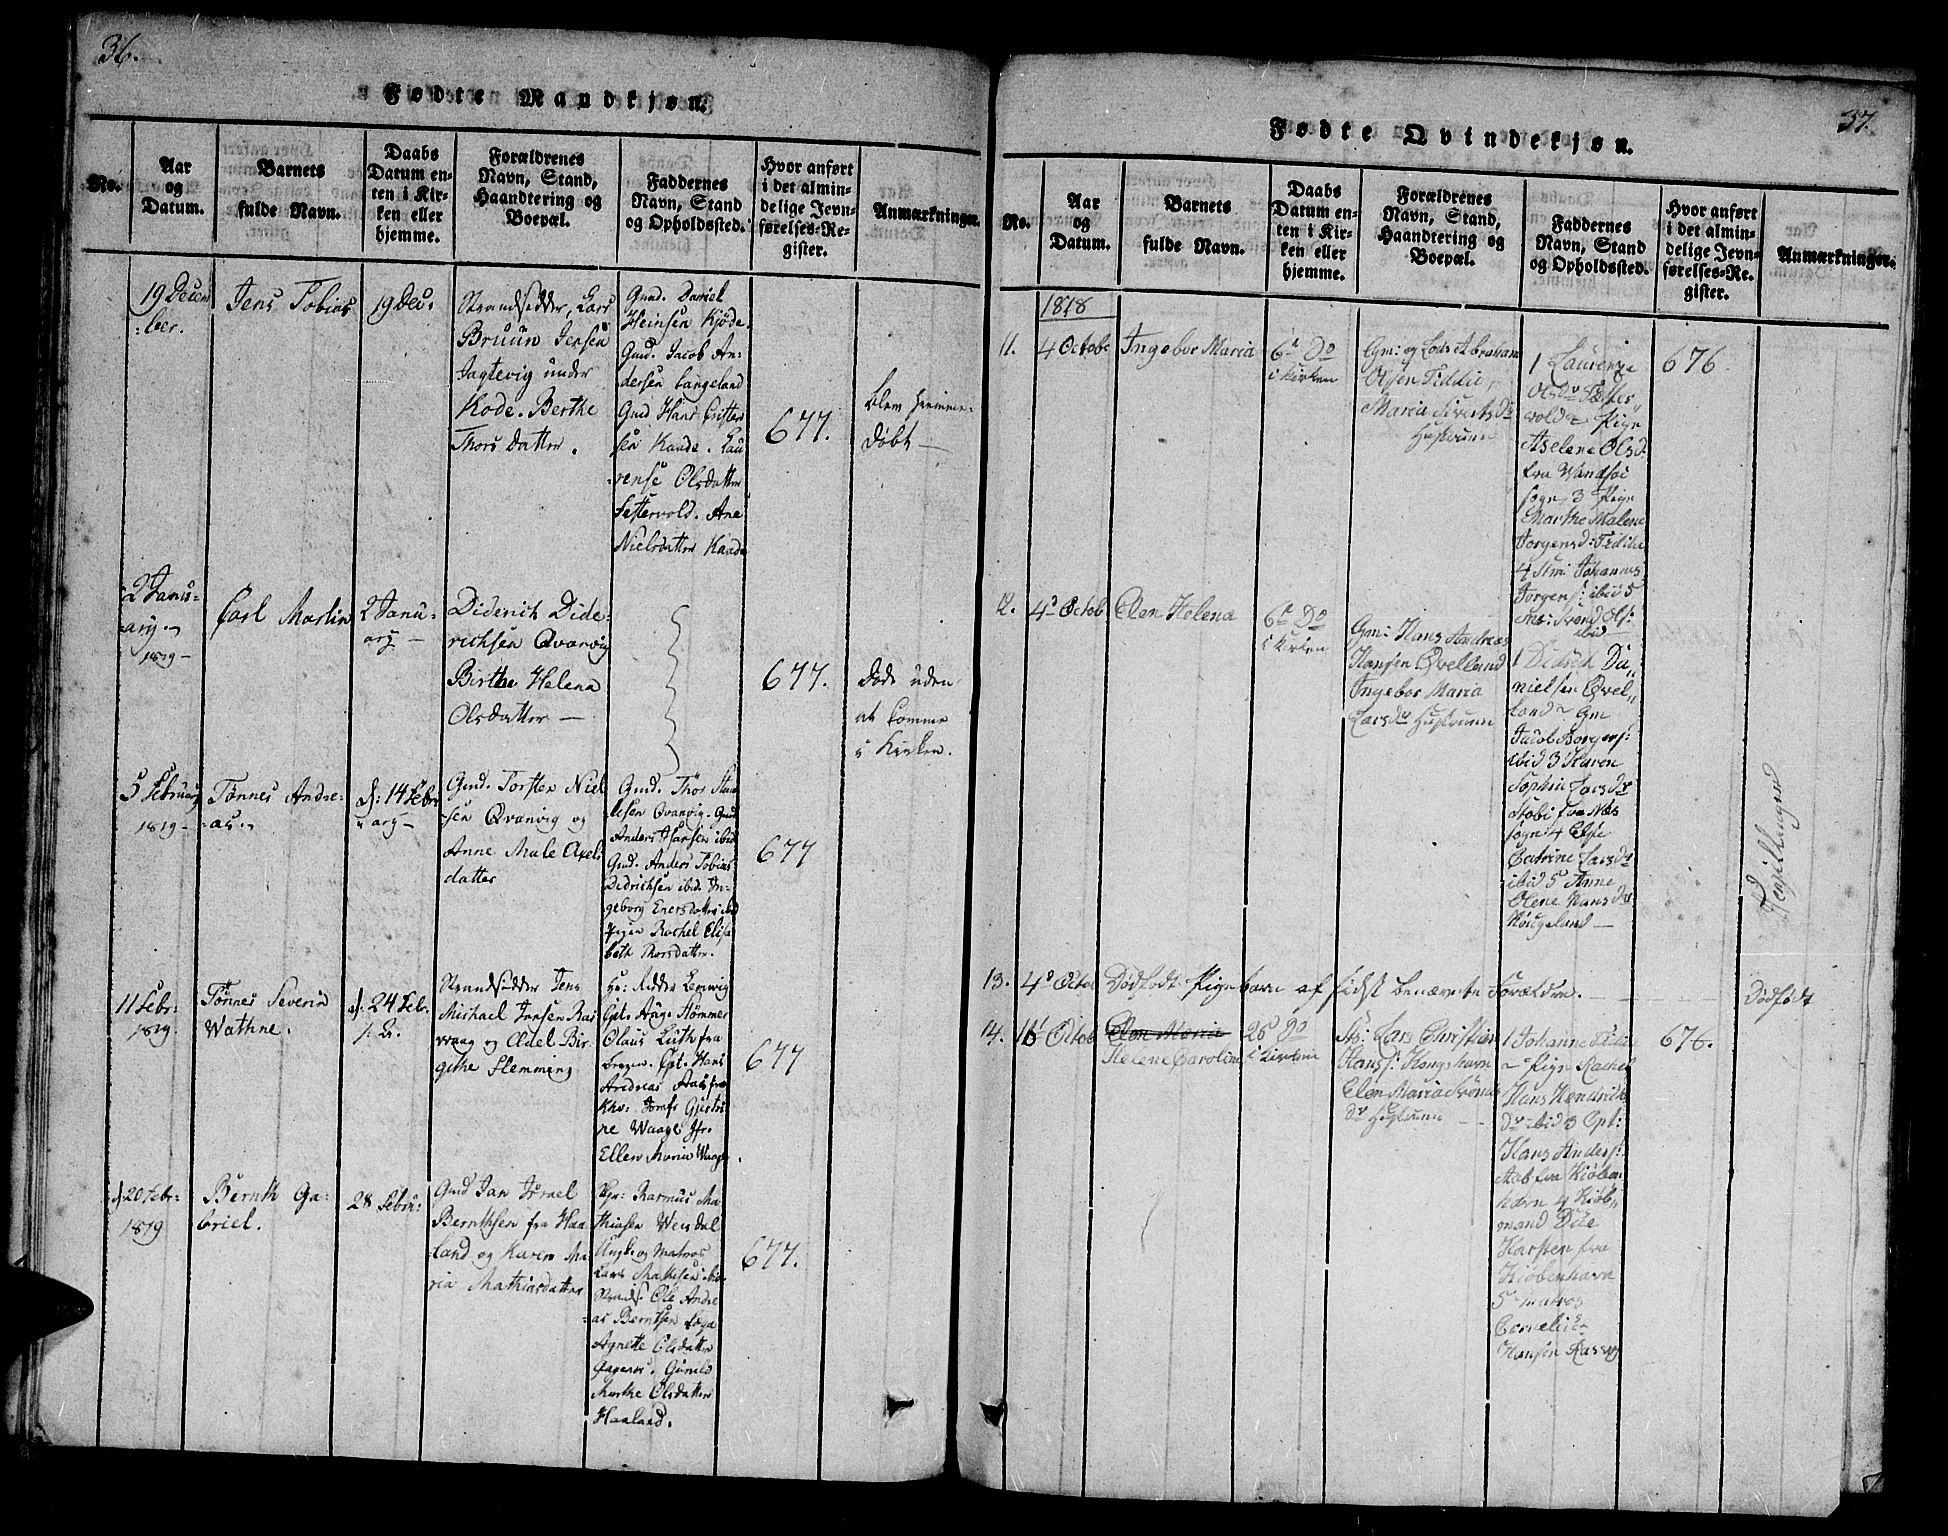 36.
Fødte Mandkjøn.
No.
Aar
og
Datum.
Barnets
fulde Navn.
Daabs
Datum en-
ten i Kir-
ken eller
hjemme.
Forældrenes
Navn, Stand,
Haandtering og
Boepæl.
Faddernes
Navn, Stand
og Opholdssted.
Hvor anført
i det almin-
delige Jevn-
førelses-Re-
gister.
Anmærkninger.
19 Decem
:ber.
Jens Tobias
19 Dec:
Strandsidder, Lars
Bruun Jensen
Jagtevig under
Kode. Berthe
Thors datter.
Gmd. Daniel
Heinsen Kjøde.
Gmd. Jacob An-
dersen Langeland
Gmd Hans
sen Kaade. Lau
rense Olsdatter
Festervold. Ane
Nielsdatter Kaade
677.
blev hiemme-
døbt —
2 Janu-
ary
1819 —
Carl Martin
2 Janu-
ary —
Diderich Dide-
richsen Qvanvig
Birthe Helena
Olsdatter —
677.
døde uden
at komme
i Kirken.
5 Februar
1819 —
Tønnes Andre-
as.
d: 14 Febr
ary —
Gmd. Torsten Niel
sen Qvanvig og
Anne Male Axels
datter
Gmd. Thor
Qvanvig. Gmd
Anders Hansen ibid
Gmd. Anders Tobias
Didrichsen ibid. In-
geborg Enersdatter ibid
Pigen Rachel Elisa
beth Thorsdatter.
677
11 Febr:
1819.
Tønnes Severin
Wathne.
d: 24 Febr.
Strandsidder Jens
Michael Jensen Ras
vaag og Edel Bir
githe Flemming
Hr: Ridder Lemvig
Olaus Luth fra
Cpt. Hans
Andreas fra
Khv: Jomfr Gjertru
re Waage Jfr.
Ellen Maria Waage.
677
d: 20 Febr:
1819
Bernth Ga-
briel.
28 Febru:
Gmd Jan Israel
Bernthsen fra Haa
land og Karen Ma
ria Mathiasdatter
Rasmus Ma
thiasen Weisdal
Ungk: og Matros
Lars Mathisen ibid
Strands: Ole Andre
as Berntsen
Agnette Olsdatter
Gunild
Marthe Olsdatter
Haaland.
677.
37.
Fødte Qvindekjøn.
No.
Aar
og
Datum.
Barnets
fulde Navn.
Daabs
Datum en-
ten i Kir-
ken eller
hjemme.
Forældrenes
Navn, Stand,
Haandtering og
Boepæl.
Faddernes
Navn, Stand
og Opholdssted.
Hvor anført
i det almin-
delige Jevn-
førelses-Re-
gister.
Anmærkninger.
1818
11.
4 Octobr
Ingebor Maria
6t Do
i Kirken
Gm: og Lods Abraham
Olsen Fiddie,
Maria Sivertsdr
Hustruen
1 Laurenze
Olsdr Fæster
vold — Pige
Aselene Olsd.
fra Wandsøe
sogn, 3 Pige
Marthe Malene
Jorgensd: Fidie
4 Johannes
Jorgens: ibid 5
Svend Ols:
ibid —
676
12.
4d Octob
Elen Helena
6t Do
i Kirken
Gm: Hans Andreas
Hansen Qvelland
Ingebor Maria
Larsdr Hustruen
1 Didrich Da
nielsen Qvel
land — Gm
Jacob Borgers:
ibid 3 Karen
Sophie Larsdr
fra Næs
sogn: 4 Else
Catrine Larsdr
ibid 5 Anne
Olene Hansdr
Høugeland —
Tvillinger
13.
4d Octob
Dødfødt Pigebarn af sidst benævnte Forældre.
Dødfødt
14.
16 Octob
Elen Maria
Helene Caroline
25d Do
i Kirken
St: Lars Christian
Hans: Kongshavn
Elen Maria
dr Hustruen
1 Johanne Fidie
— Pige Rachel
Hans Hendrick
dr ibid 3 Cpt:
Hans Anders:
fra Kiøben
havn 4 Kiøb
mand Dile
Karsten fra
Kiøbenhavn
5 Matros
Cornelius
Hansen Rasvog
676.